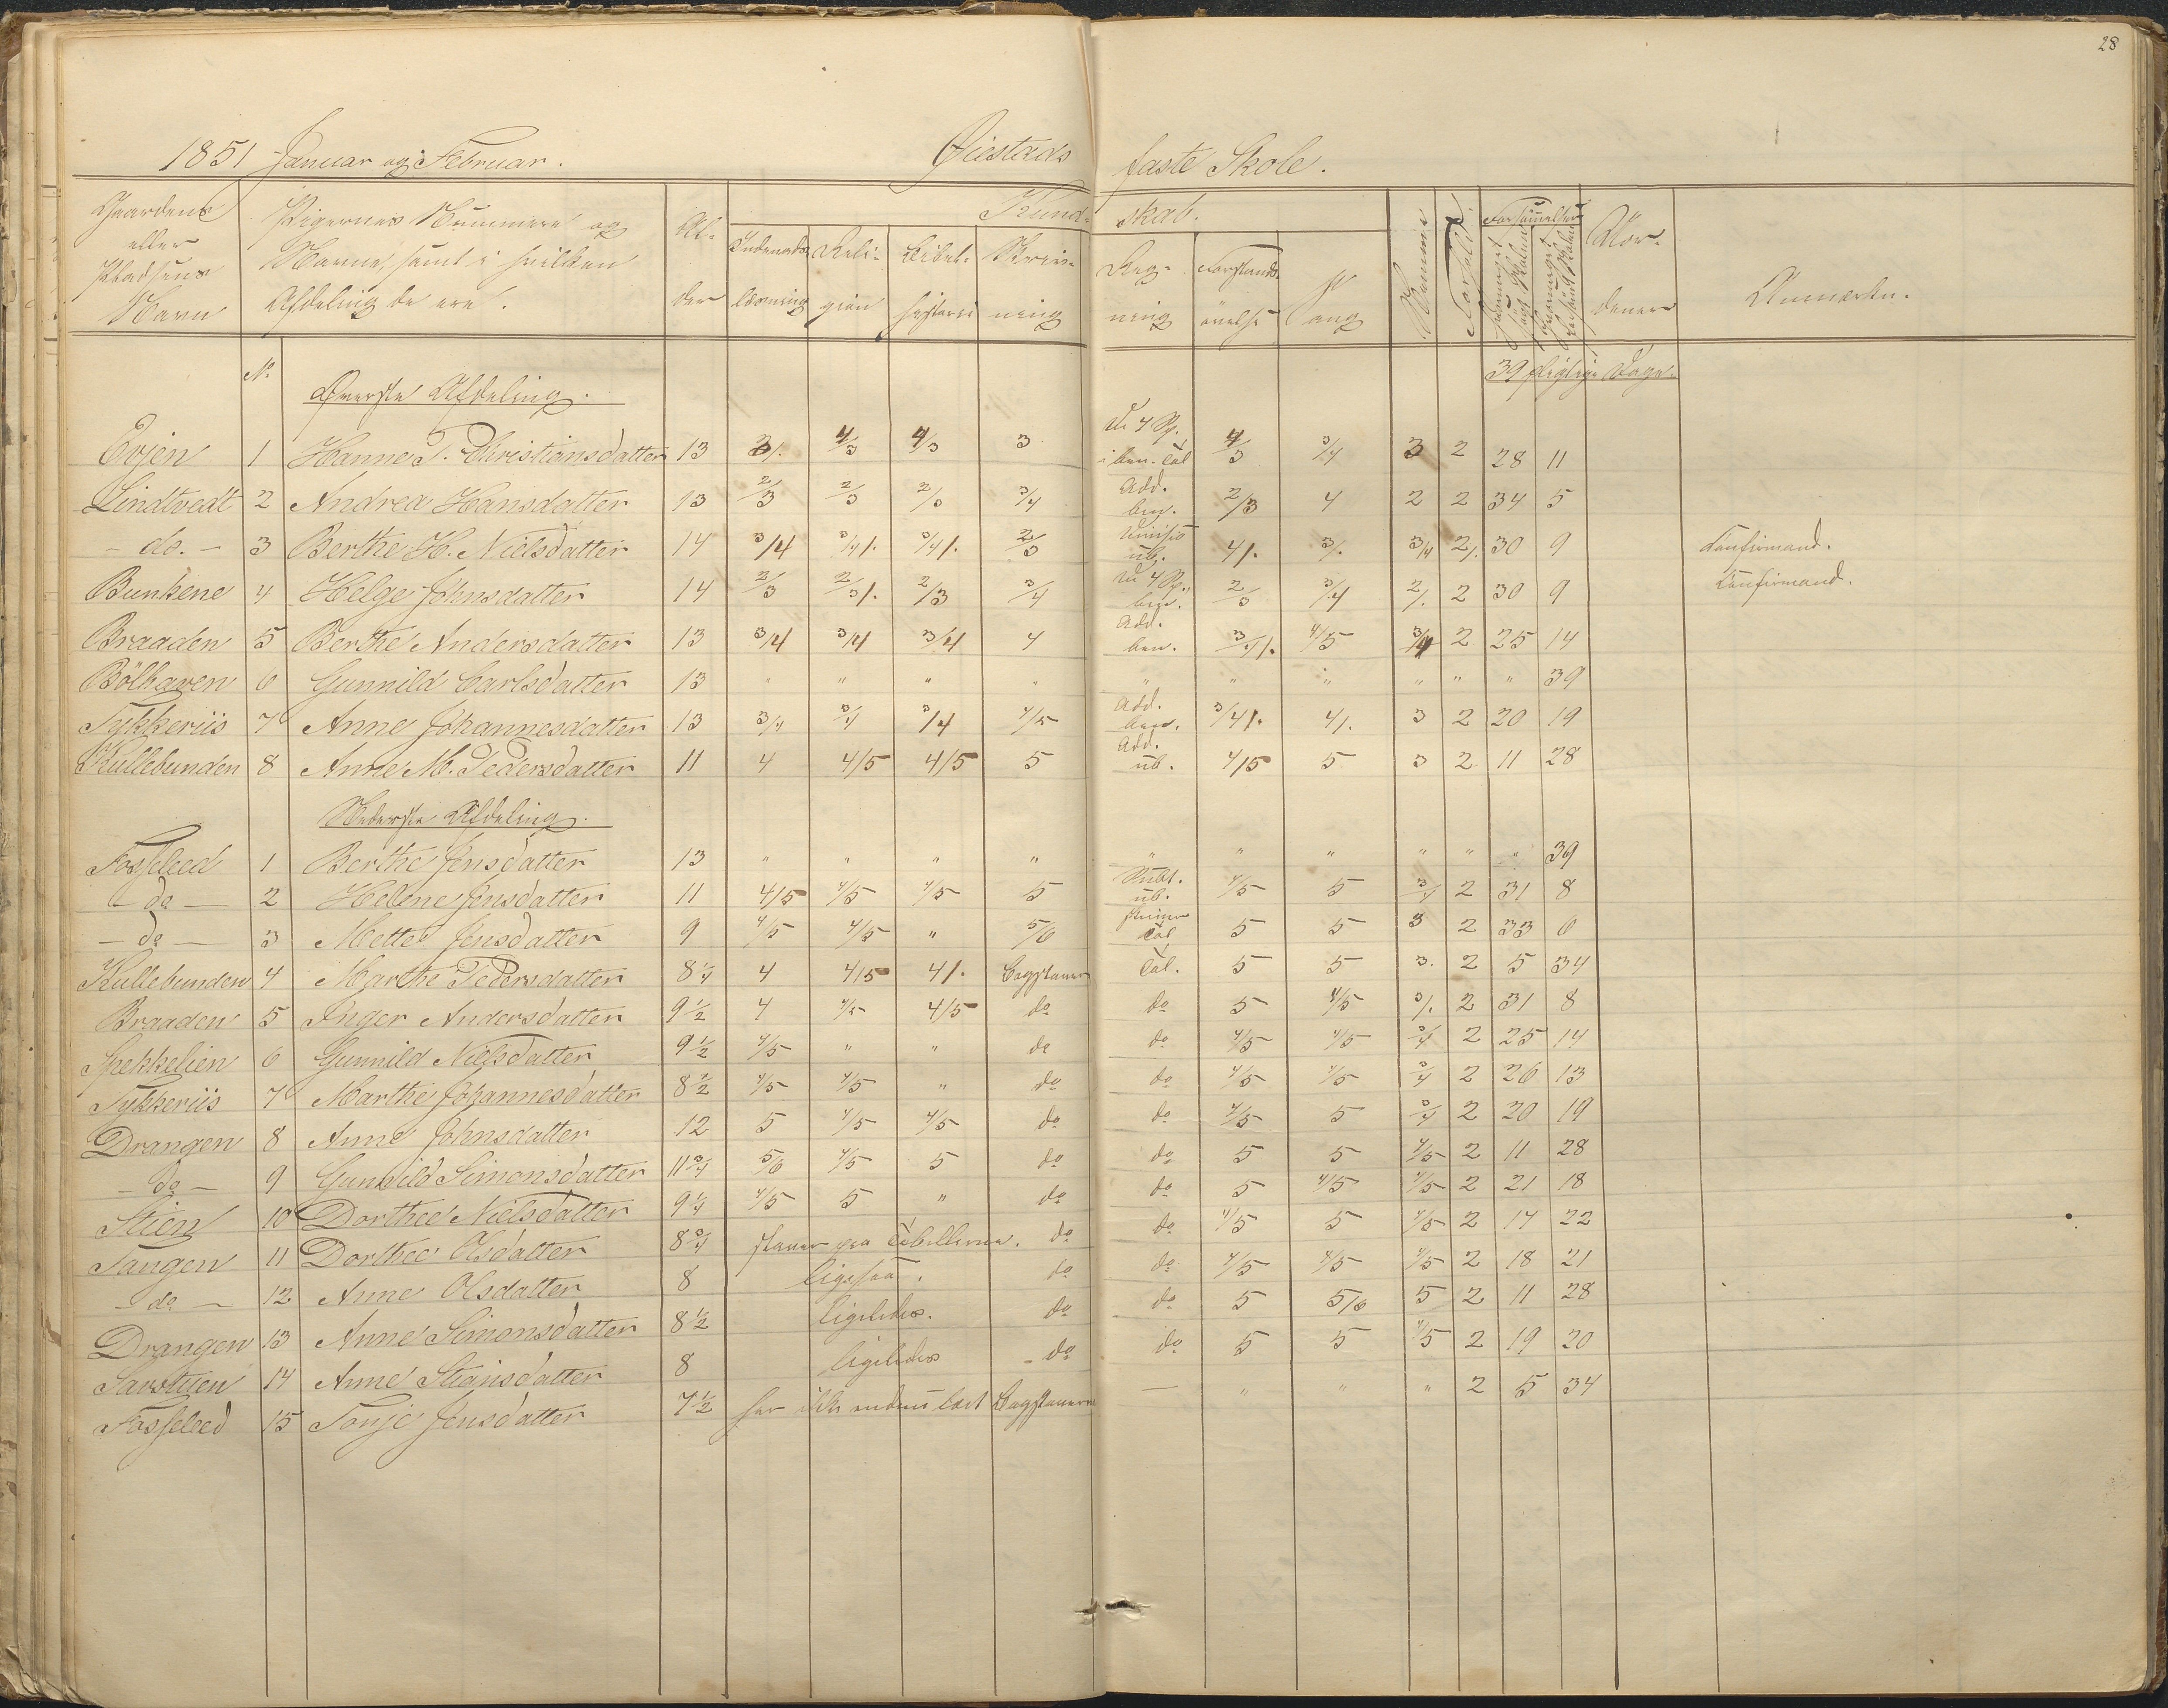 28
1851 Januar og Februar. Øiestads faste Skole.
Gaardens eller Pladsens Navn
Pigernes Nummere og Navne, samt i hvilken Afdeling de ere.
Alder
Kundskab.
Indenadslæsning
Religion
Bibelhistorie
Skrivning
Regning
Forstandsøvelse
Sang
Nemme
Forhold
Forsømmelser
Mødener
Anmærkn.
No
39 pligtige Dage.
Øverste Afdeling.
Evjen 1 Hanne T. Christiansdatter 13 3/. 4/3 4/3 3 De 4 Sp. i ben. Tal 4/3 3/4 3 2 28 11
Lindtvedt 2 Andrea Hansdatter 13 2/3 2/3 2/3 3/4 Add. ben. 2/3 4 2 2 34 5
- do. - 3 Berthe H. Nielsdatter 14 3/4 3/4/. 3/4/. 2/3 Division ub. 4/. 3/. 3/4 2/. 30 9 Confirmand.
Bunkene 4 Helge Johnsdatter 14 2/3 2/3/. 2/3 3/4 De 4 Sp. ben. 2/3 3/4 2/. 2 30 9 Confirmand.
Braaden 5 Berthe Andersdatter 13 3/4 3/4 3/4 4 Add. ben. 3/4/. 4/5 3/4 2 25 14
Bölhaven 6 Gunnild Carlsdatter 13 " " " " " " " " " " 39
Tykkeriis 7 Anne Johannesdatter 13 3/4 3/4 3/4 4/5 Add. ben. 3/4/. 4/. 3 2 20 19
Kullebunden 8 Anne M. Pedersdatter 11 4 4/5 4/5 5 Add. ub. 4/5 5 3 2 11 28
Nederste Afdeling.
Fosseleed 1 Berthe Jensdatter 13 " " " " " " " " " " 39
- do - 2 Helene Jensdatter 11 4/5 4/5 4/5 5 Subt. ub. 4/5 5 3/4 2 31 8
- do - 3 Mette Jensdatter 9 4/5 4/5 " 5/6 skriver Tal 5 5 3 2 33 6
Kullebunden 4 Marthe Pedersdatter 8 1/4 4 4/5 4/. Bogstaver Tal. 5 5 3. 2 5 34
Braaden 5 Inger Andersdatter 9 1/2 4 4/5 4/5 do do 5 4/5 3/. 2 31 8
Spekkelien 6 Gunnild Nielsdatter 9 1/2 4/5 " " do do 4/5 4/5 3/4 2 25 14
Tykkeriis 7 Marthe Johannesdatter 8 1/2 4/5 4/5 " do do 4/5 4/5 3/4 2 26 13
Drangen 8 Anne Johnsdatter 12 5 4/5 4/5 do do 4/5 5 3/4 2 20 19
- do - 9 Gunhild Simonsdatter 11 3/4 5/6 4/5 5 do do 5 5 4/5 2 11 28
Stien 10 Dorthee Nielsdatter 9 1/4 4/5 5 " do do 5 4/5 4/5 2 21 18
Tangen 11 Dorthee Olsdatter 8 3/4 staver paa Tabellerne. do do 4/5 5 4/5 2 17 22
- do - 12 Anne Olsdatter 8 ligesaa. do do 4/5 4/5 4/5 2 18 21
Drangen 13 Anne Simonsdatter 8 1/2 ligeledes. do do 5 5/6 5 2 11 28
14 Anne Stiansdatter 8 ligeledes - do do 5 5 4/5 2 19 20
Fosseleed 15 Tonje Jensdatter 7 1/2 har ikke endnu lært Bogstaverne — " " " 2 5 34